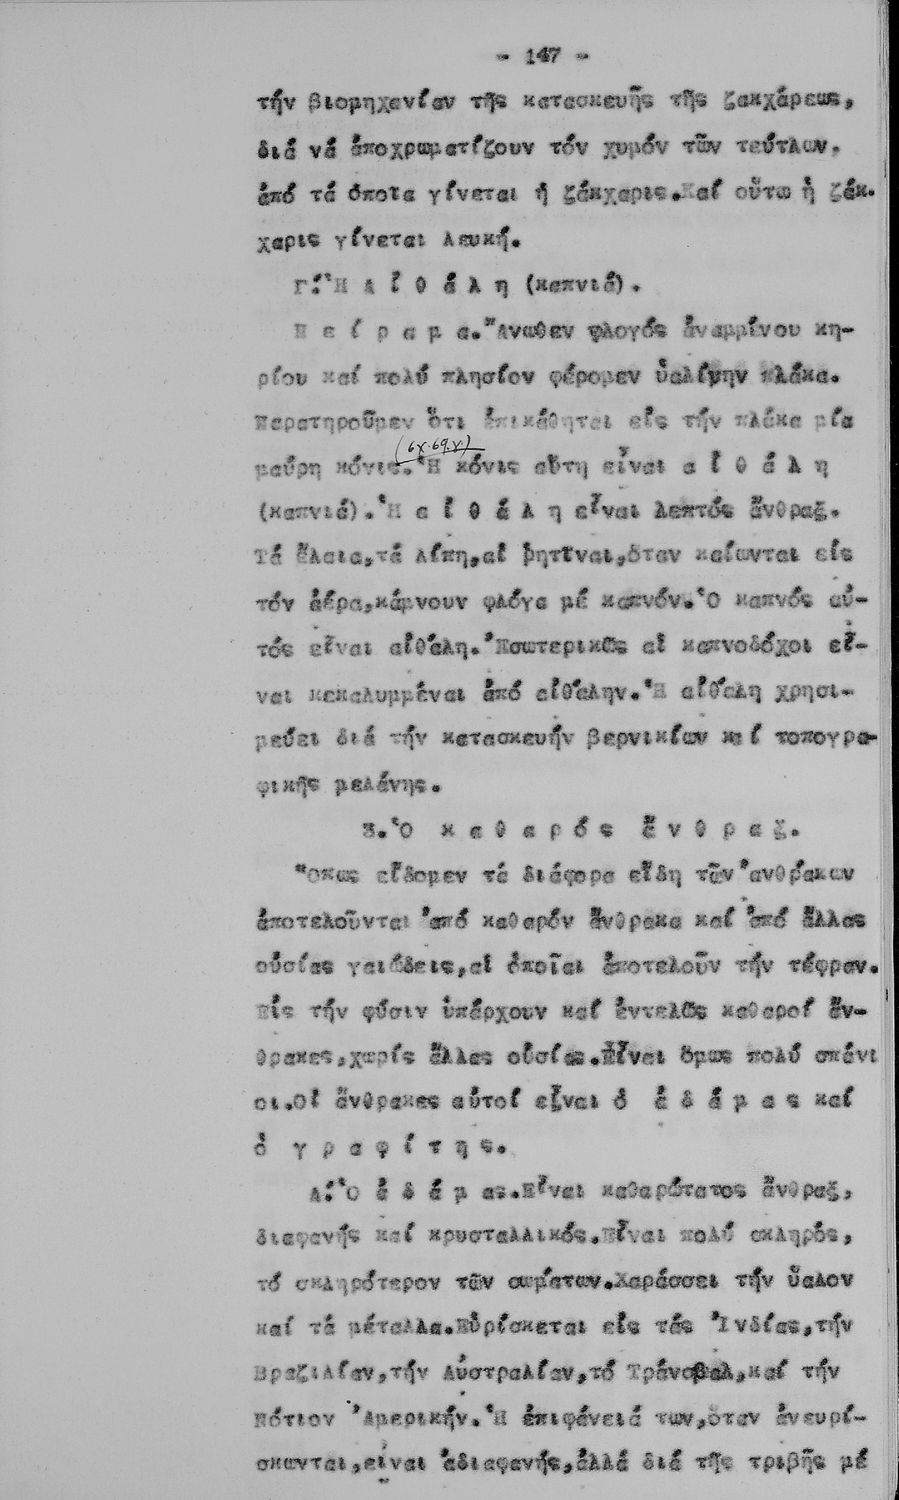 - 147 -
τήν βιομηχανίαν τῆς κατασκευῆς τῆς ζακχάρεως,
διά νά ἀποχρωματίζουν τόν χυμόν τῶν τεύτλων,
ἀπό τά ὁποῖα γίνεται ἡ ζάκχαρις.Καί οὕτω ἡ ζάκ-
χαρις γίνεται λευκή.
Γ.'Ἡ Α ἰ θ ά λ η (καπνιά).
Π ε ί ρ α μ α. Ἄνωθεν φλογός ἀναμμένου κη-
ρίου καί πολύ πλησίον φέρομεν ὑαλίνην πλάκα.
Παρατηροῦμεν ὅτι ἐπικάθηται εἰς τήν πλάκα μία
(σχ.69.γ)
μαύρη κόνις. Ἡ κόνις αὕτη εἶναι α ἰ θ ά λ η
(καπνιά). Ἡ α ἰ θ ά λ η εἶναι λεπτός ἄνθραξ.
Τά ἔλαια,τά λίπη,αἱ ρητῖναι,ὅταν καίωνται εἰς
τόν ἀέρα,κάμνουν φλόγα μέ καπνόν. Ὁ καπνός αὐ-
τός εἶναι αἰθάλη. Ἐσωτερικῶς αἱ καπνοδόχοι εἶ-
ναι κεκαλυμμέναι ἀπό αἰθάλην. Ἡ αἰθάλη χρησι-
μεύει διά τήν κατασκευήν βερνικίων καί τοπογρα-
φικῆς μελάνης.
3. Ὁ κ α θ α ρ ό ς ἄ ν θ ρ α ξ.
Ὅπως εἴδομεν τά διάφορα εἴδη τῶν ἀνθράκων
ἀποτελοῦνται ἀπό καθαρόν ἄνθρακα καί ἀπό ἄλλας
οὐσίας γαιώδεις,αἱ ὁποῖαι ἀποτελοῦν τήν τέφραν.
Εἰς τήν φύσιν ὑπάρχουν καί ἐντελῶς καθαροί ἄν-
θρακες,χωρίς ἄλλας οὐσίας.Εἶναι ὅμως πολύ σπάνι
οι.Οἱ ἄνθρακες αὐτοί εἶναι ὁ ἀ δ ά μ α ς καί
ὁ γ ρ α φ ί τ η ς.
Α.'Ὁ ἀ δ ά μ ας.Εἶναι καθαρώτατος ἄνθραξ,
διαφανής καί κρυσταλλικός.Εἶναι πολύ σκληρός,
τό σκληρότερον τῶν σωμάτων.Χαράσσει τήν ὕαλον
καί τά μέταλλα.Εὑρίσκεται εἰς τάς Ἰνδίας,τήν
Βραζιλίαν,τήν Αὐστραλίαν,τό Τράνσβαλ,καί τήν
Νότιον Ἀμερικήν. Ἡ ἐπιφάνειά των,ὅταν ἀνευρί-
σκωνται,εἶναι ἀδιαφανής,ἀλλά διά τῆς τριβῆς μέ